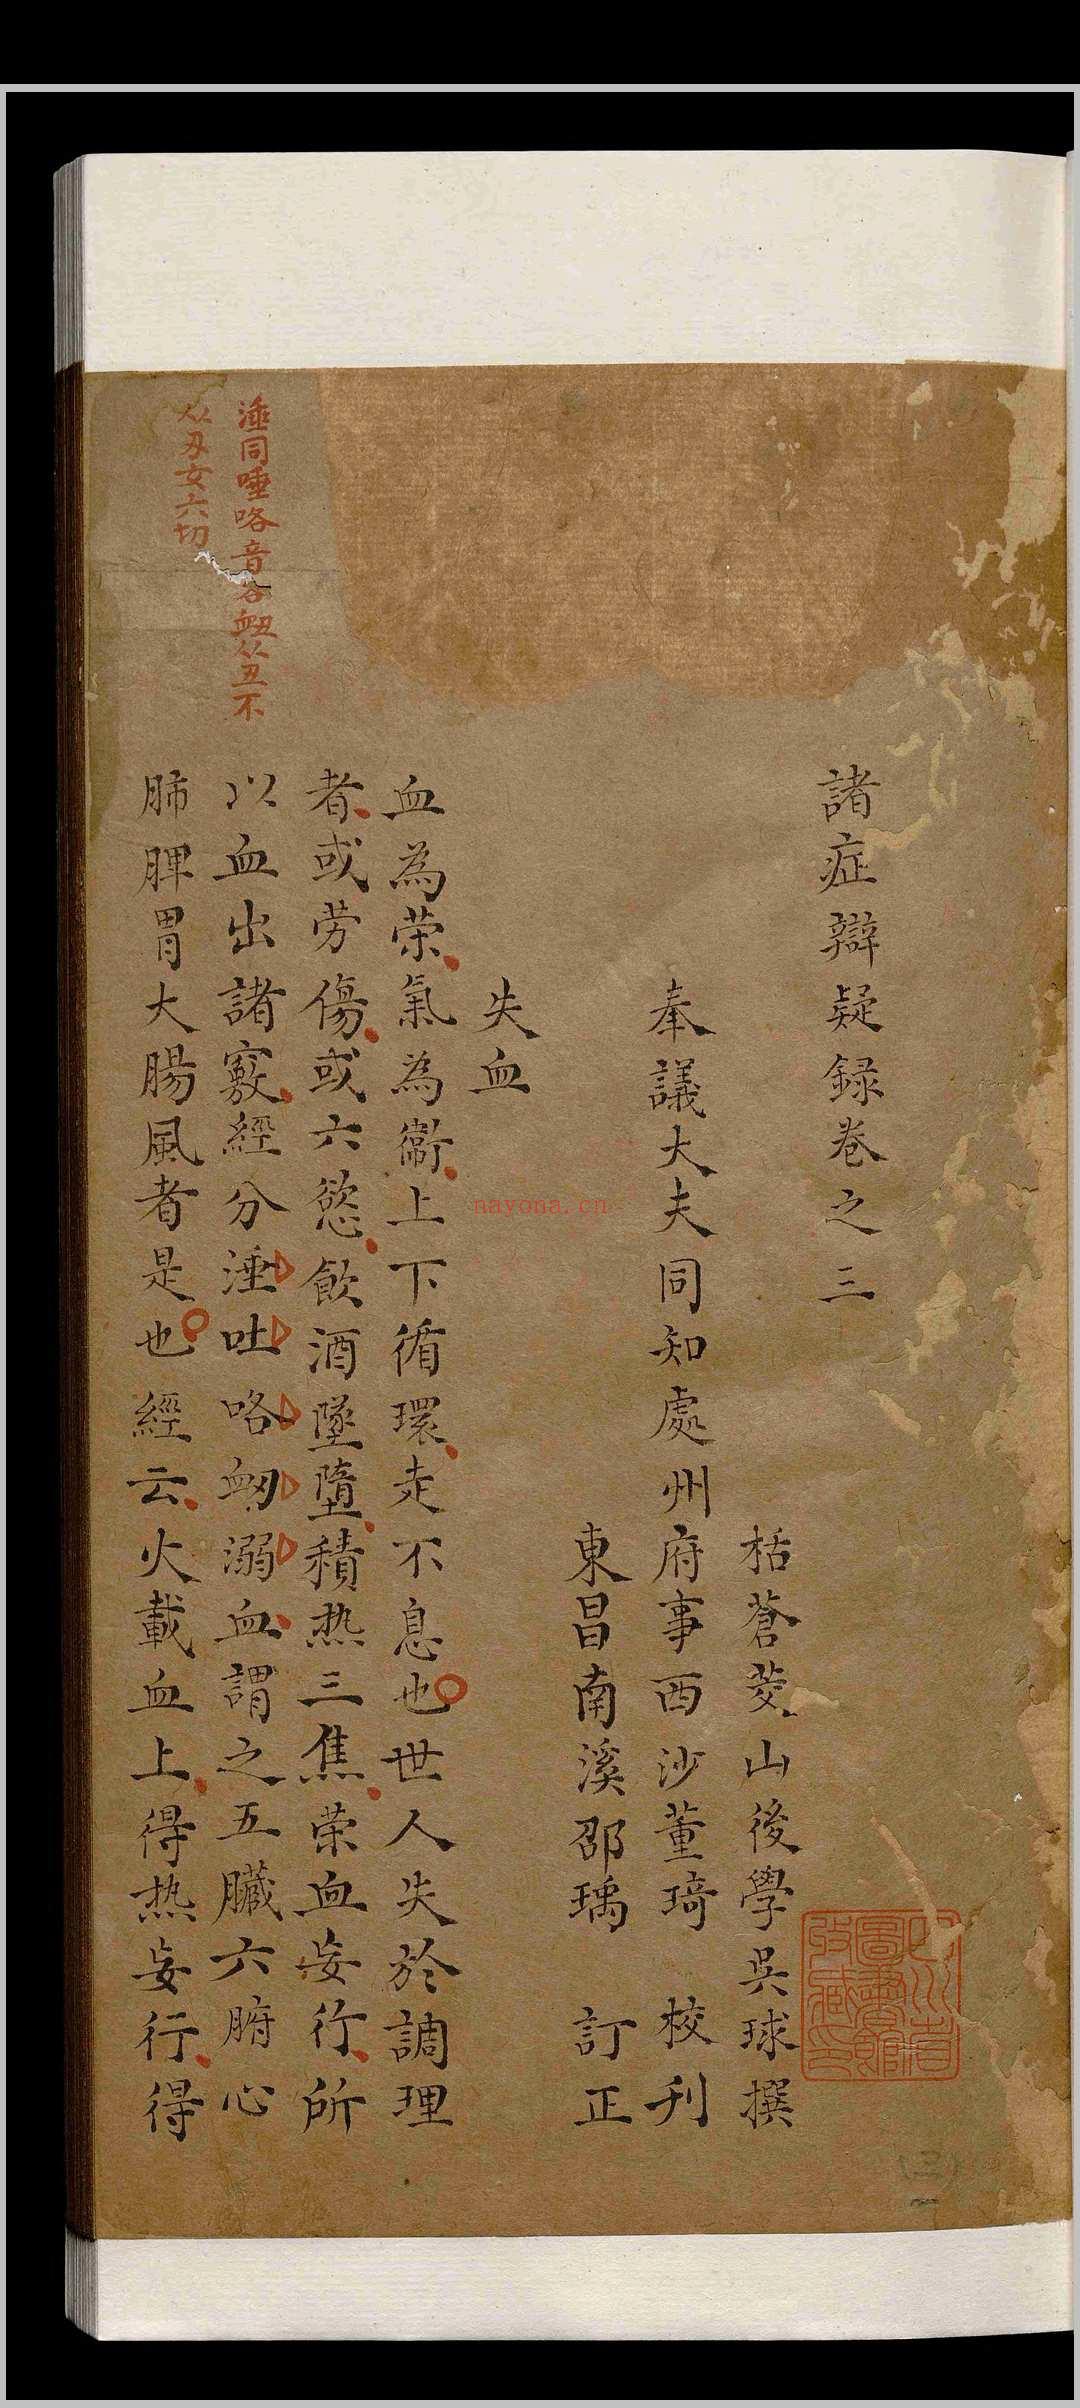 諸症辯疑録卷之三
栝蒼菱山後學吳球撰
奉議大夫同知處州府事西沙董琦 校刋
東昌南溪邵瑀 訂正
失血
血為荣氣為衞上下循環走不息也世人失於調理
者或劳傷或六慾飲酒墜墮積热三焦荣血妄行所
以血出諸竅經分涶吐咯衂溺血謂之五臓六腑心
肺脾胃大腸風者是也經云火載血上得热妄行得
涶同唾咯音各衄从丑不
从刄女六切
圖書館
收藏印
nayona.cn
(三)
一